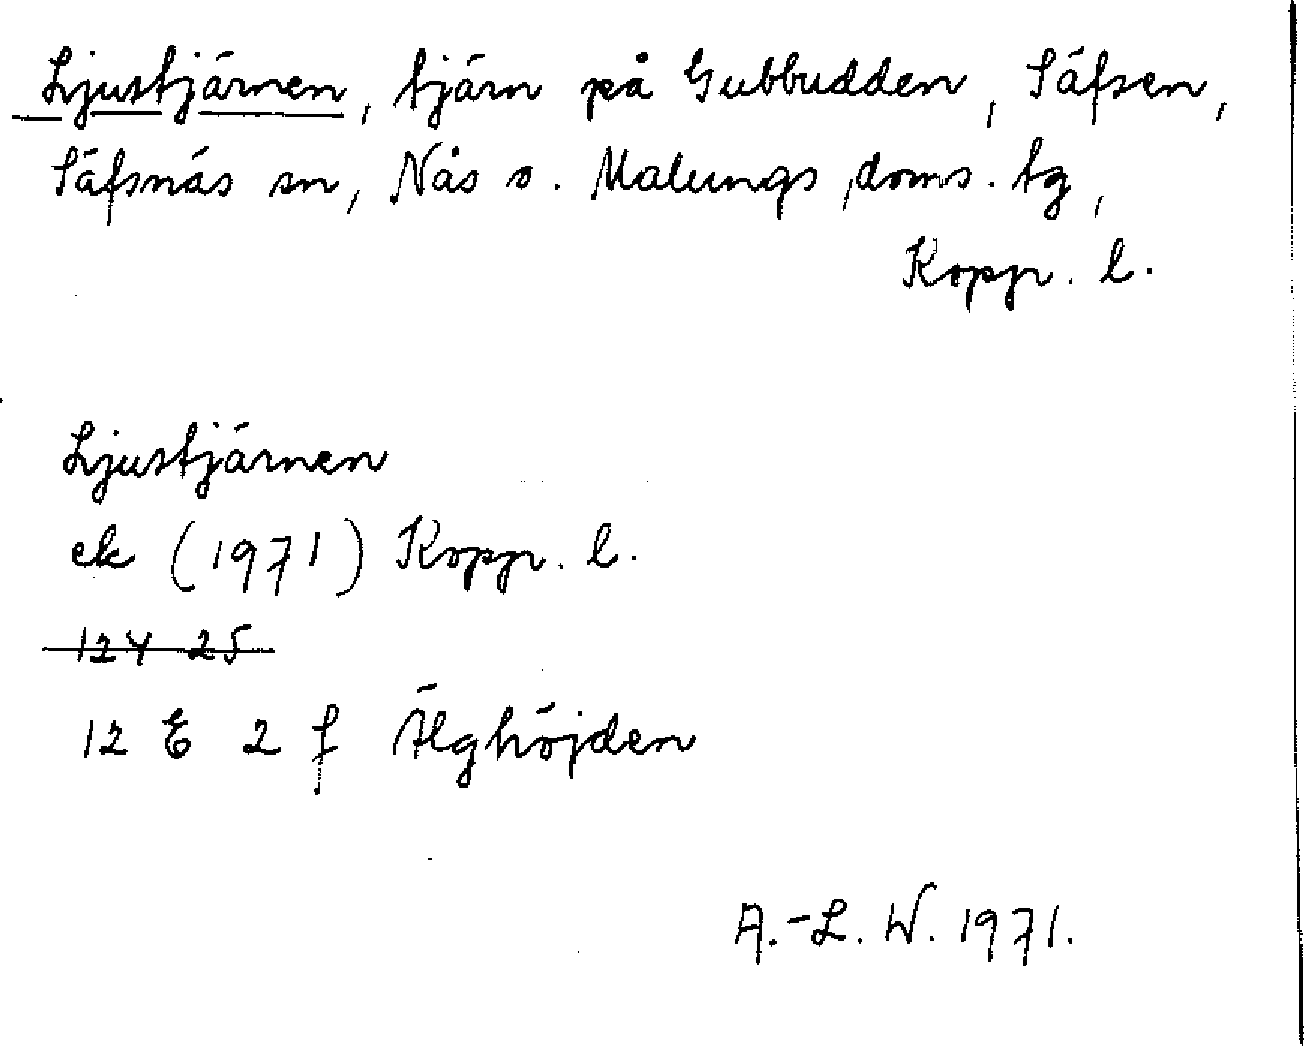 Ljustjärnen, tjärn på Gubbudden, Säfsen,
Säfsnäs sn, Nås o. Malungs doms. tg,
Kopp. l.
Ljustjärnen
ek (1971) Kopp. l.
124 25
12 E 2 f Älghöjden
A.-L. W. 1971.